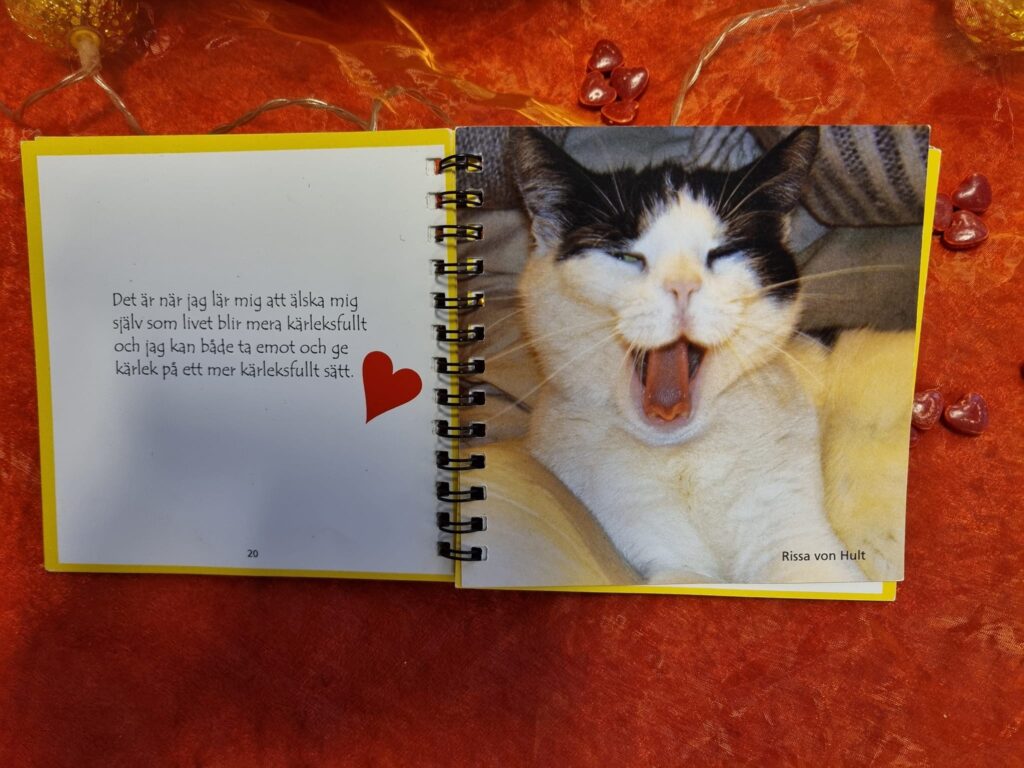 Det är när jag lär mig att älska mig
själv som livet blir mera kärleksfullt
och jag kan både ta emot och ge
kärlek på ett mer kärleksfullt sätt.
20
Rissa von Hult